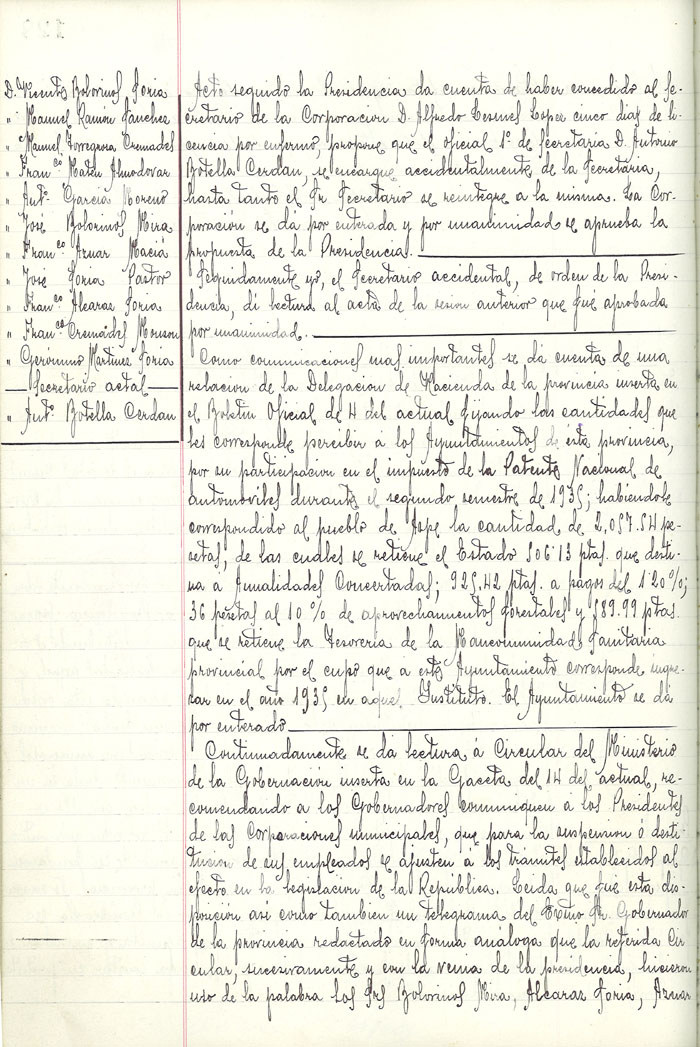 D. Vicente Bolorinos Soria
" Manuel Ramón Sánchez
" Manuel Torregrosa Cremades
" Fran.co Mateu Almodovar
" Ant.o García Moreno
" José Bolorinos Mira
" Fran.co Aznar Maciá
" José Soria Pastor
" Fran.co Alcaraz Soria
" Fran.co Cremades
" Geronimo Martinez Soria
Secretario actal
" Ant.o Botella Cerdan
Acto seguido la Presidencia da cuenta de haber concedido al Se-
cretario de la Corporacion D. Alfredo Lopez cinco dias de li-
cencia por enfermo, propone que el oficial 1º de Secretaria D. Antonio
Botella Cerdan, se encargue accidentalmente de la Secretaria,
hasta tanto el Sr Secretario se reintegre a la misma. La Cor-
poración se dá por enterada y por unanimidad se aprueba la
propuesta de la Presidencia.
Seguidamente yo, el Secretario accidental, de orden de la Presi-
dencia, di lectura al acta de la sesion anterior que fue aprobada
por unanimidad.
Como comunicaciones mas importantes se dá cuenta de una
relacion de la Delegacion de Hacienda de la provincia inserta en
el Boletin Oficial de 4 del actual fijando las cantidades que
les corresponde percibir á los Ayuntamientos de esta provincia,
por su participacion en el impuesto de la Patente Nacional de
automoviles durante el segundo semestre de 1935; habiendole
correspondido al pueblo de Aspe la cantidad de 2,057.54 pe-
setas, de las cuales se retiene el Estado 506'13 ptas. que desti-
na a Anualidades Concertadas; 925,42 ptas. a pagos del 1'20%;
36 pesetas al 10% de aprovechamientos forestales y 589.99 ptas.
que se retiene la Tesoreria de la Mancomunidad Sanitaria
provincial por el cupo que a este Ayuntamiento corresponde ingre-
sar en el año 1935 en aquel Instituto. El Ayuntamiento se dá
por enterado
Continuadamente se da lectura á Circular del Ministerio
de la Gobernación inserta en la Gaceta del 14 del actual, re-
comendando a los Gobernadores comuniquen á los Presidentes
de las Corporaciones municipales, que para la suspension ó desti-
tucion de sus empleados se ajusten a los tramites establecidos al
efecto en la legislacion de la República. Leida que fue esta dis-
posición asi como tambien un telegrama del Excmo Sr. Gobernador
de la provincia redactado en forma análoga que la referida Cir-
cular, sucesivamente y con la venia de la presidencia, hicieron
uso de la palabra los Srs Bolorinos Mira, Alcaraz Soria, Aznar